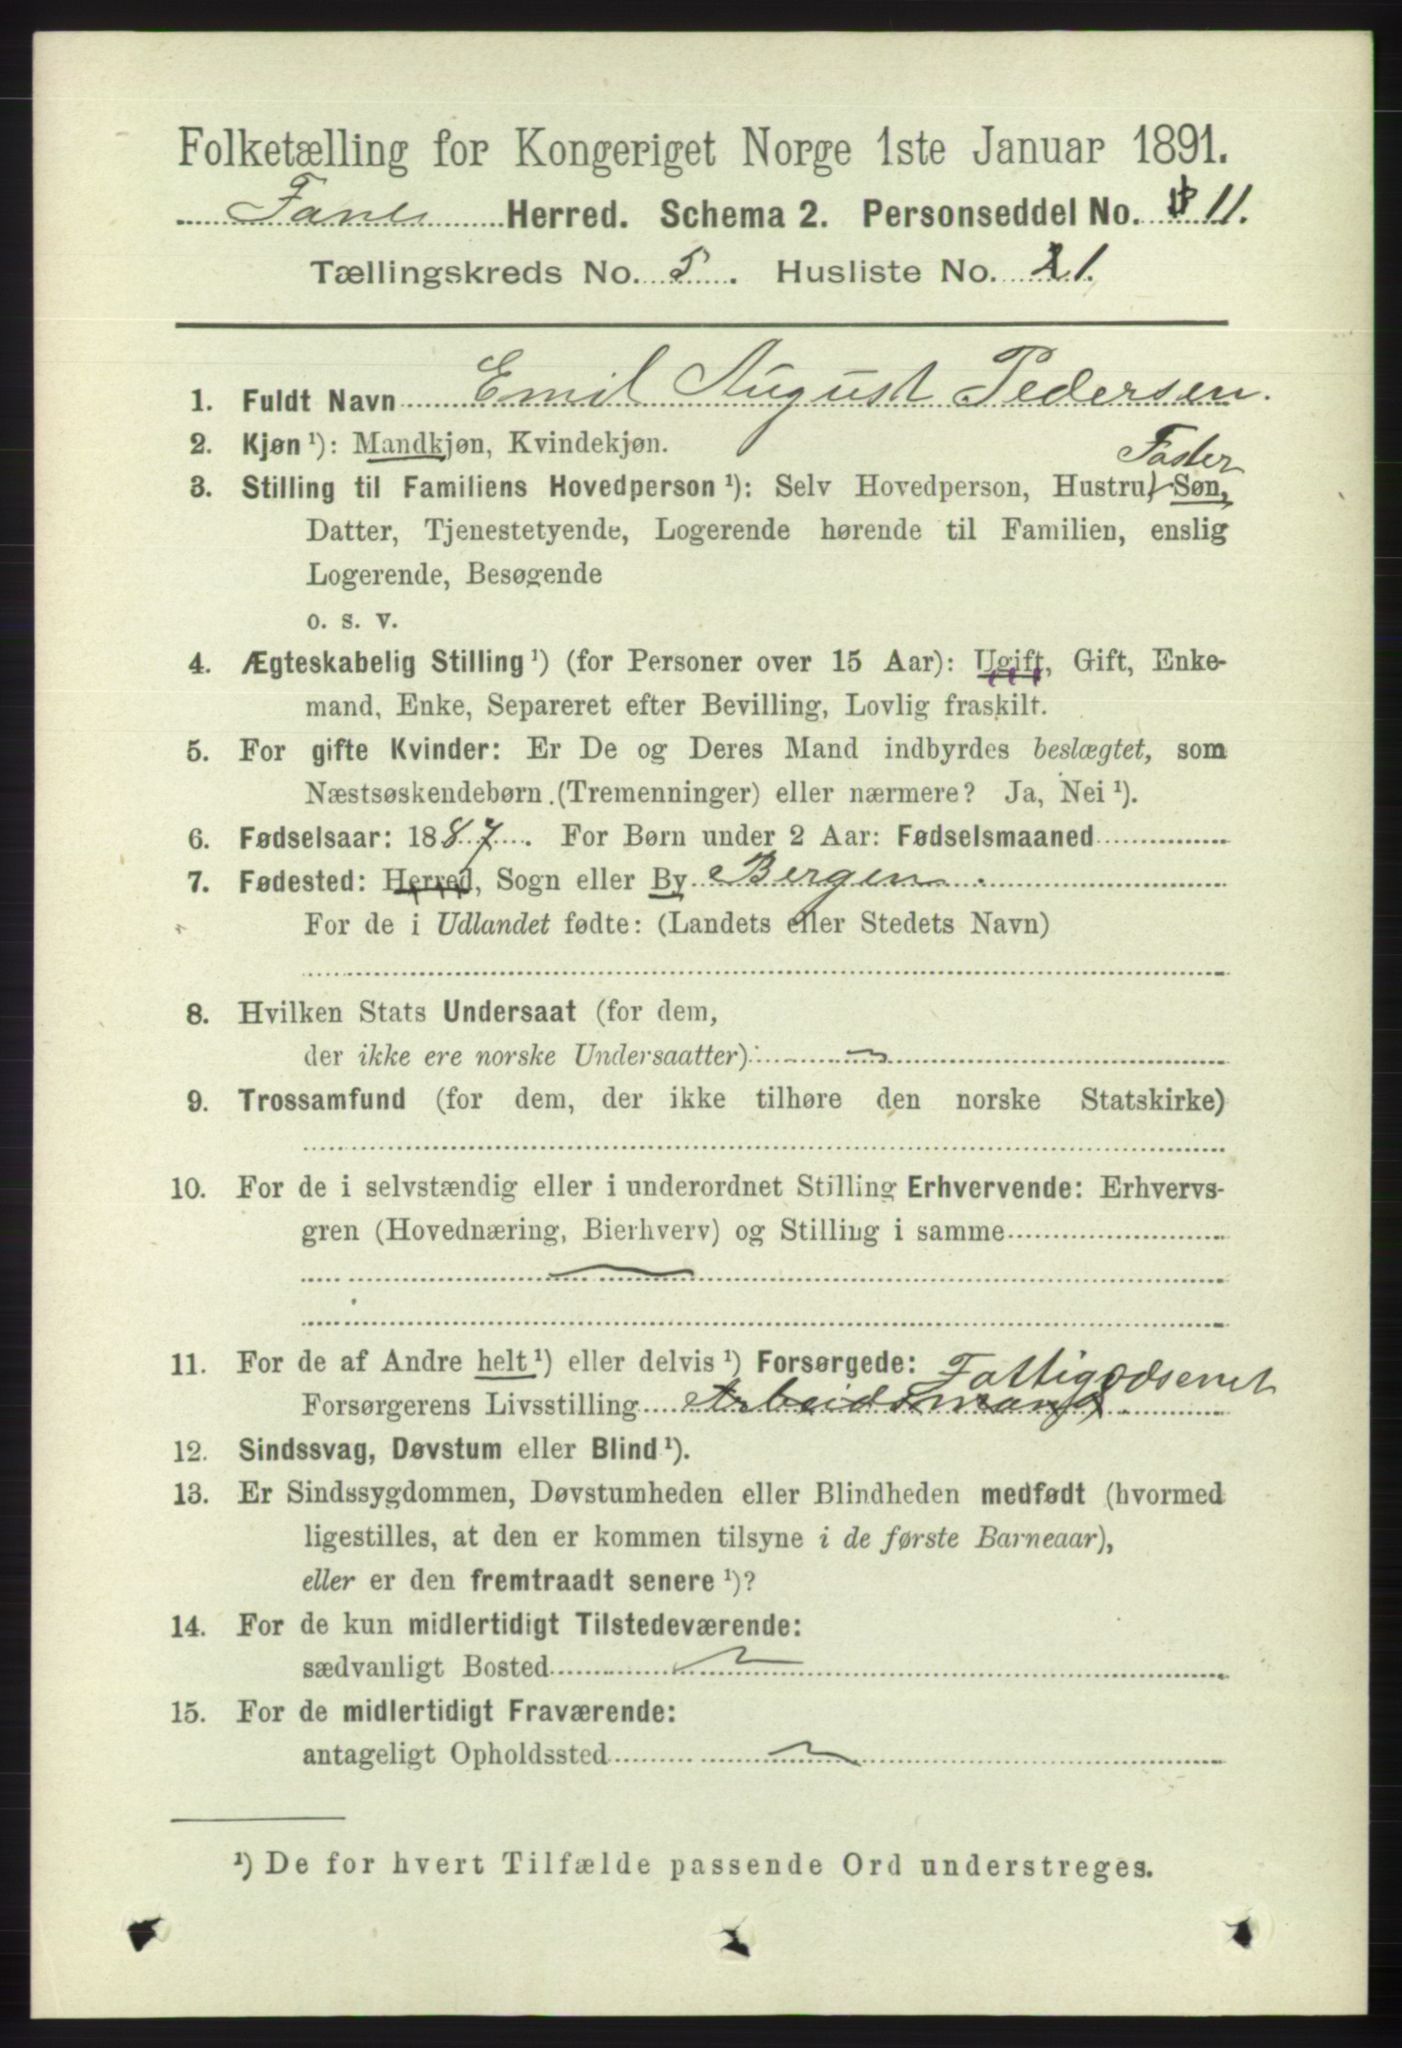 Folketælling for Kongeriget Norge 1ste Januar 1891.
Fane Herred. Schema 2. Personseddel No. 11.
Tællingskreds No. 5. Husliste No. 1.
1. Fuldt Navn Emil August Pedersen.
2. Kjøn ¹): Mandkjøn, Kvindekjøn.
Foster
3. Stilling til Familiens Hovedperson ¹): Selv Hovedperson, Hustru, Søn,
Datter, Tjenestetyende, Logerende hørende til Familien, enslig
Logerende, Besøgende
o. s. v.
4. Ægteskabelig Stilling ¹) (for Personer over 15 Aar): Ugift, Gift, Enke-
mand, Enke, Separeret efter Bevilling, Lovlig fraskilt.
5. For gifte Kvinder: Er De og Deres Mand indbyrdes beslægtet, som
Næstsøskendebørn (Tremenninger) eller nærmere? Ja, Nei ¹).
6. Fødselsaar: 1887. For Børn under 2 Aar: Fødselsmaaned
7. Fødested: Herred, Sogn eller By Bergen.
For de i Udlandet fødte: (Landets eller Stedets Navn)
8. Hvilken Stats Undersaat (for dem,
der ikke ere norske Undersaatter):
9. Trossamfund (for dem, der ikke tilhøre den norske Statskirke)
10. For de i selvstændig eller i underordnet Stilling Erhvervende: Erhvervs-
gren (Hovednæring, Bierhverv) og Stilling i samme
11. For de af Andre helt ¹) eller delvis ¹) Forsørgede: Fattigvæsenet
Forsørgerens Livsstilling Arbeidsmand.
12. Sindssvag, Døvstum eller Blind ¹).
13. Er Sindssygdommen, Døvstumheden eller Blindheden medfødt (hvormed
ligestilles, at den er kommen tilsyne i de første Barneaar),
eller er den fremtraadt senere ¹)?
14. For de kun midlertidigt Tilstedeværende:
sædvanligt Bosted
15. For de midlertidigt Fraværende:
antageligt Opholdssted
¹) De for hvert Tilfælde passende Ord understreges.